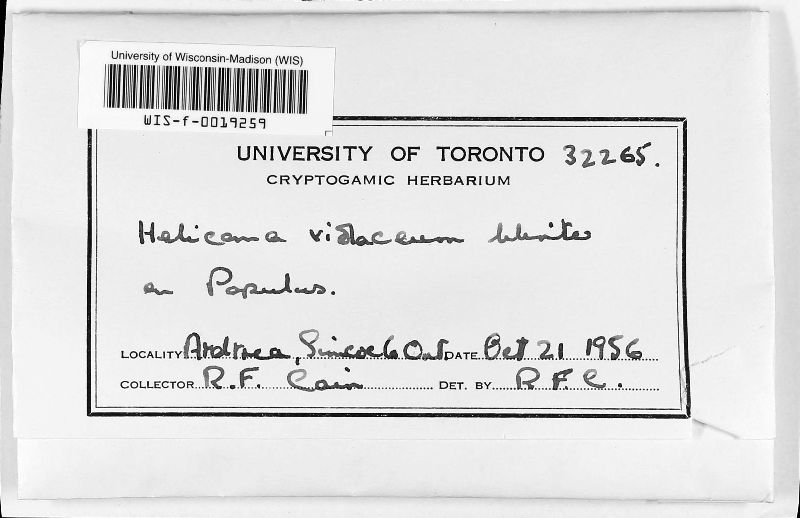 University of Wisconsin-Madison (WIS)
WIS-f-0019259
UNIVERSITY OF TORONTO 32265.
CRYPTOGAMIC HERBARIUM
Helicoma violaceum White
on Populus.
LOCALITY Ardtrea, Simcoe Co Ont DATE Oct 21 1956
COLLECTOR R.F. Cain DET. BY R F C.